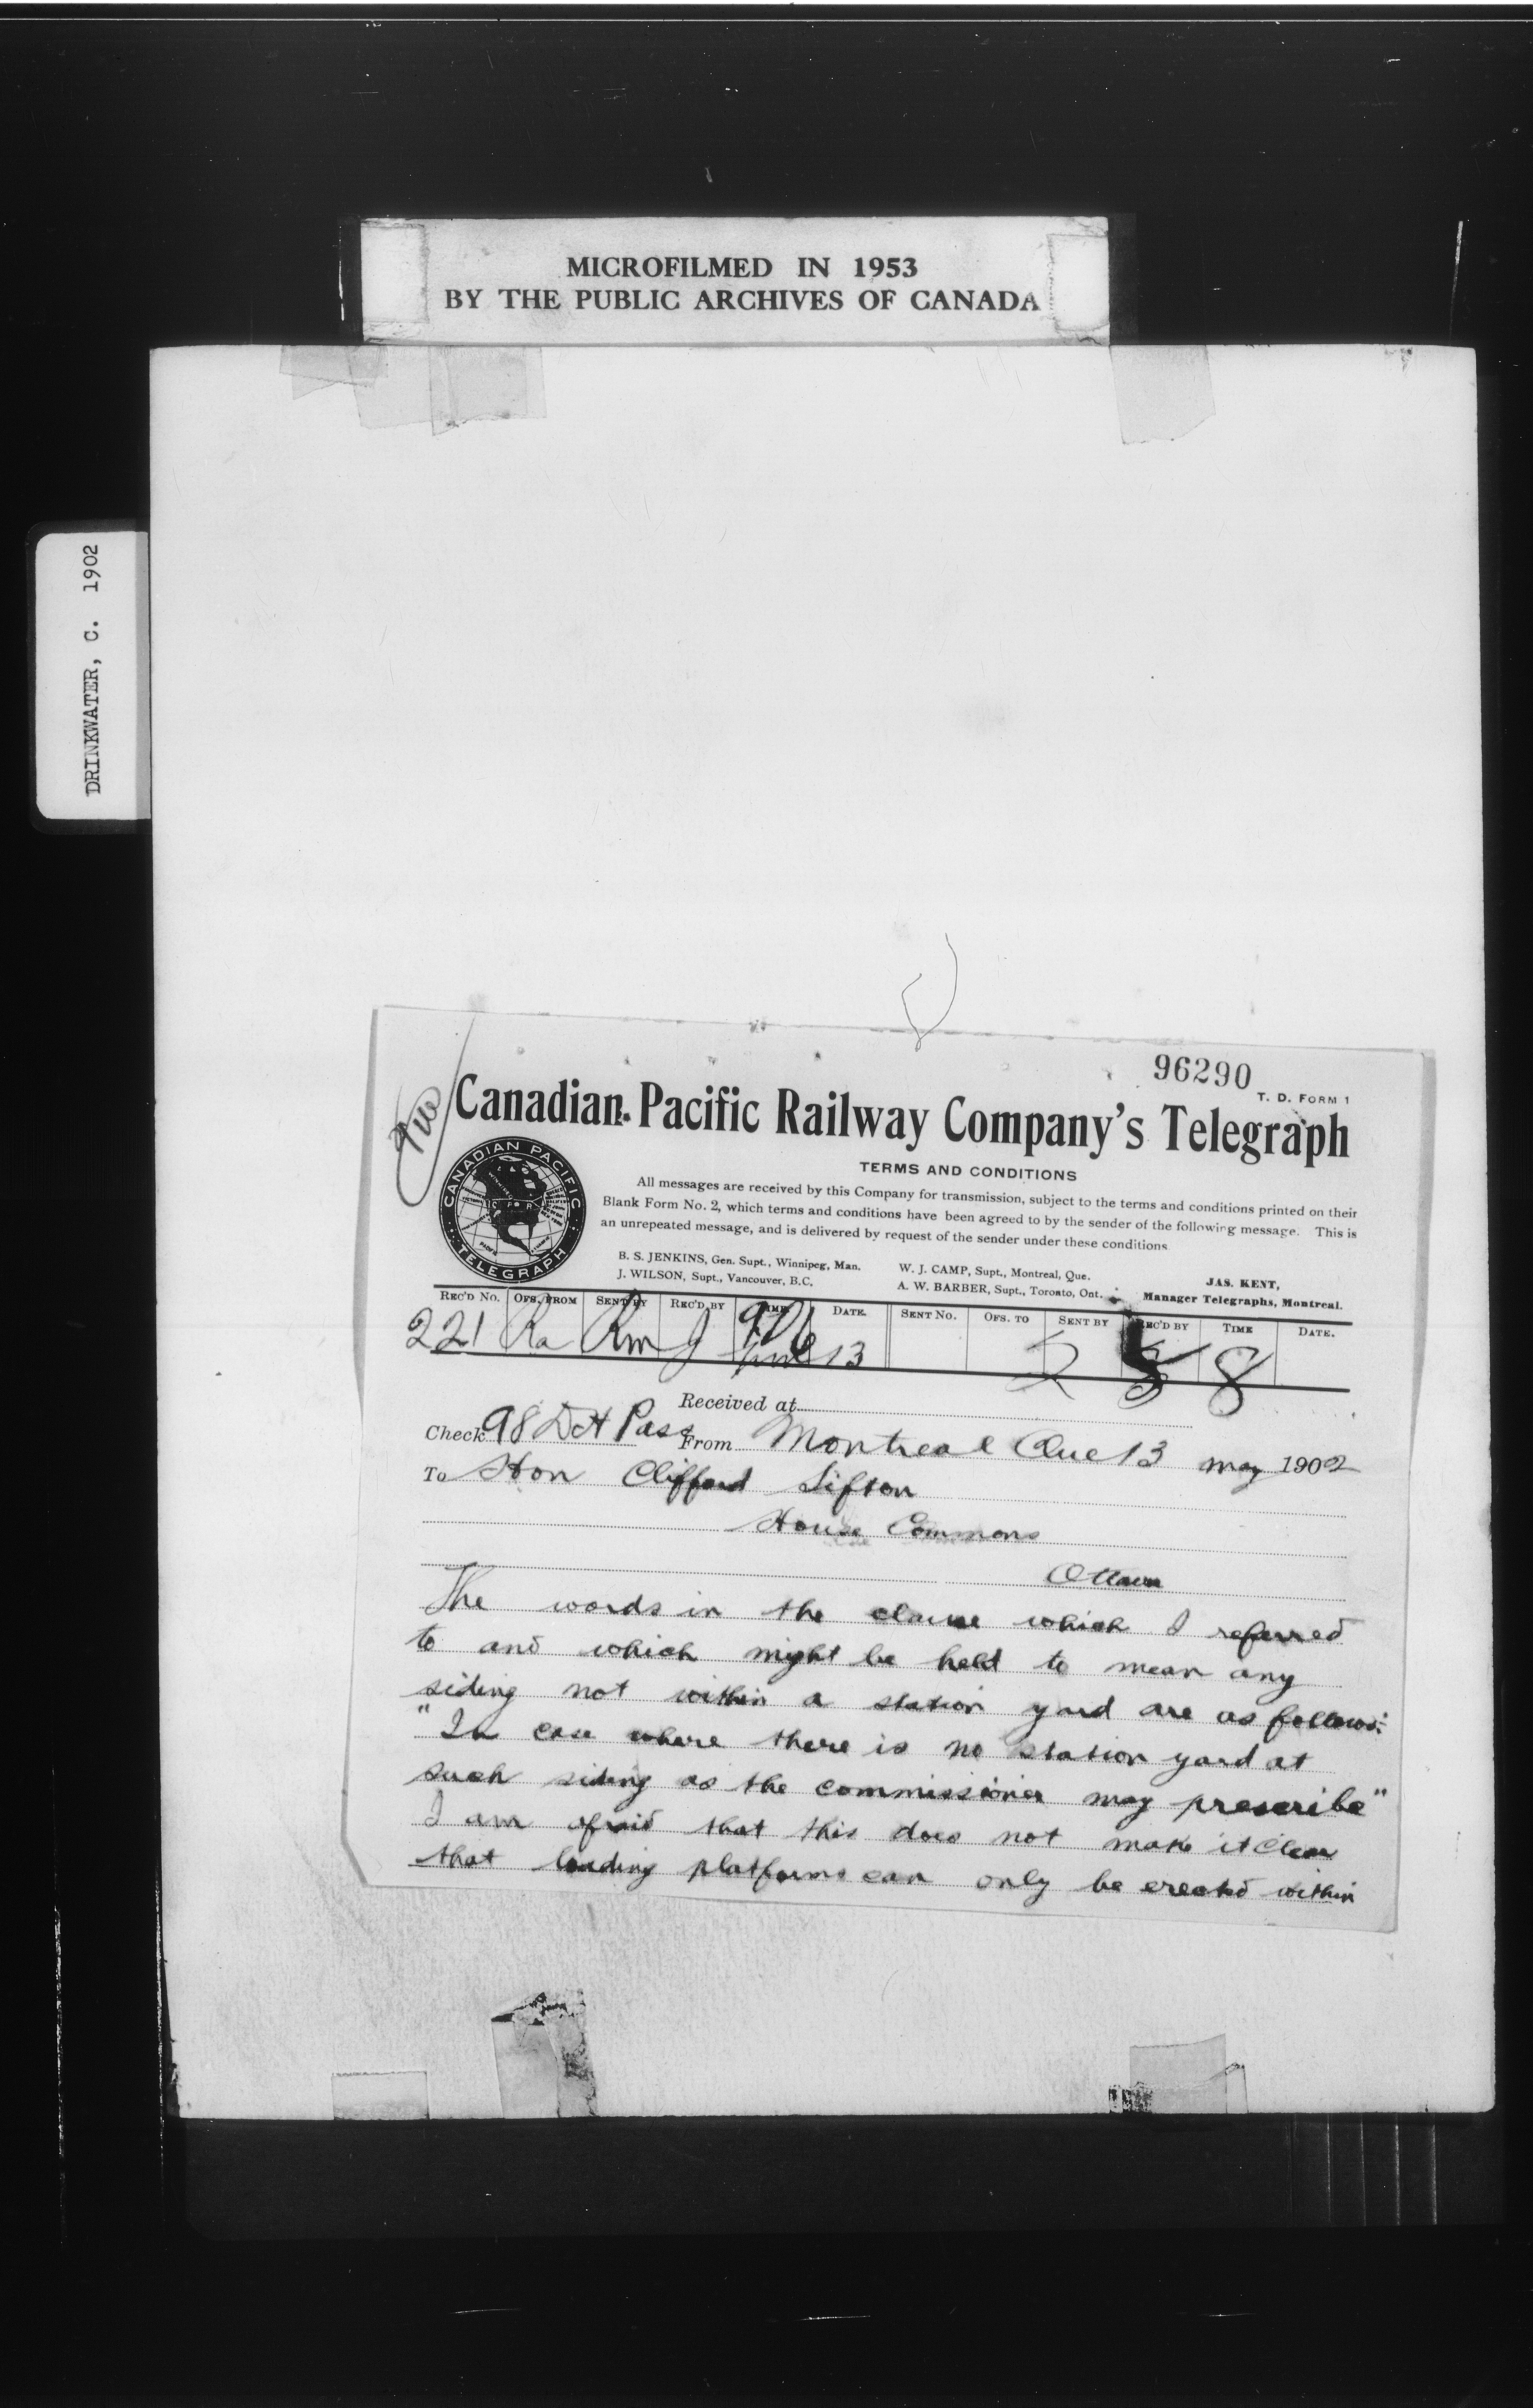 MICROFILMED IN 1953
BY THE PUBLIC ARCHIVES OF CANADA
DRINKWATER, C. 1902
96290
T. D. FORM 1
Canadian Pacific Railway Company's Telegraph
TERMS AND CONDITIONS
All messages are received by this Company for transmission, subject to the terms and conditions printed on their
Blank Form No. 2, which terms and conditions have been agreed to by the sender of the following message. This is
an unrepeated message, and is delivered by request of the sender under these conditions
CANADIAN PACIFIC
TELEGRAPH
B. S. JENKINS, Gen. Supt., Winnipeg, Man.
J. WILSON, Supt., Vancouver, B.C.
W. J. CAMP, Supt., Montreal, Que.
A. W. BARBER, Supt., Toronto, Ont.
JAS. KENT,
Manager Telegraphs, Montreal.
REC'D No. OFS. FROM SENT BY REC'D BY TIME DATE. SENT No. OFS. TO SENT BY REC'D BY TIME DATE.
221 Ra Rm J 13 8
Received at
Check 98 DH Pass From Montreal Que 13 may 1902
To Hon Clifford Sifton
House Commons
Ottawa
The words in the clause which I referred
to and which might be held to mean any
siding not within a station yard are as follows:
"In case where there is no station yard at
such siding as the commissioner may prescribe"
I am afraid that this does not make it clear
that loading platforms can only be erected within